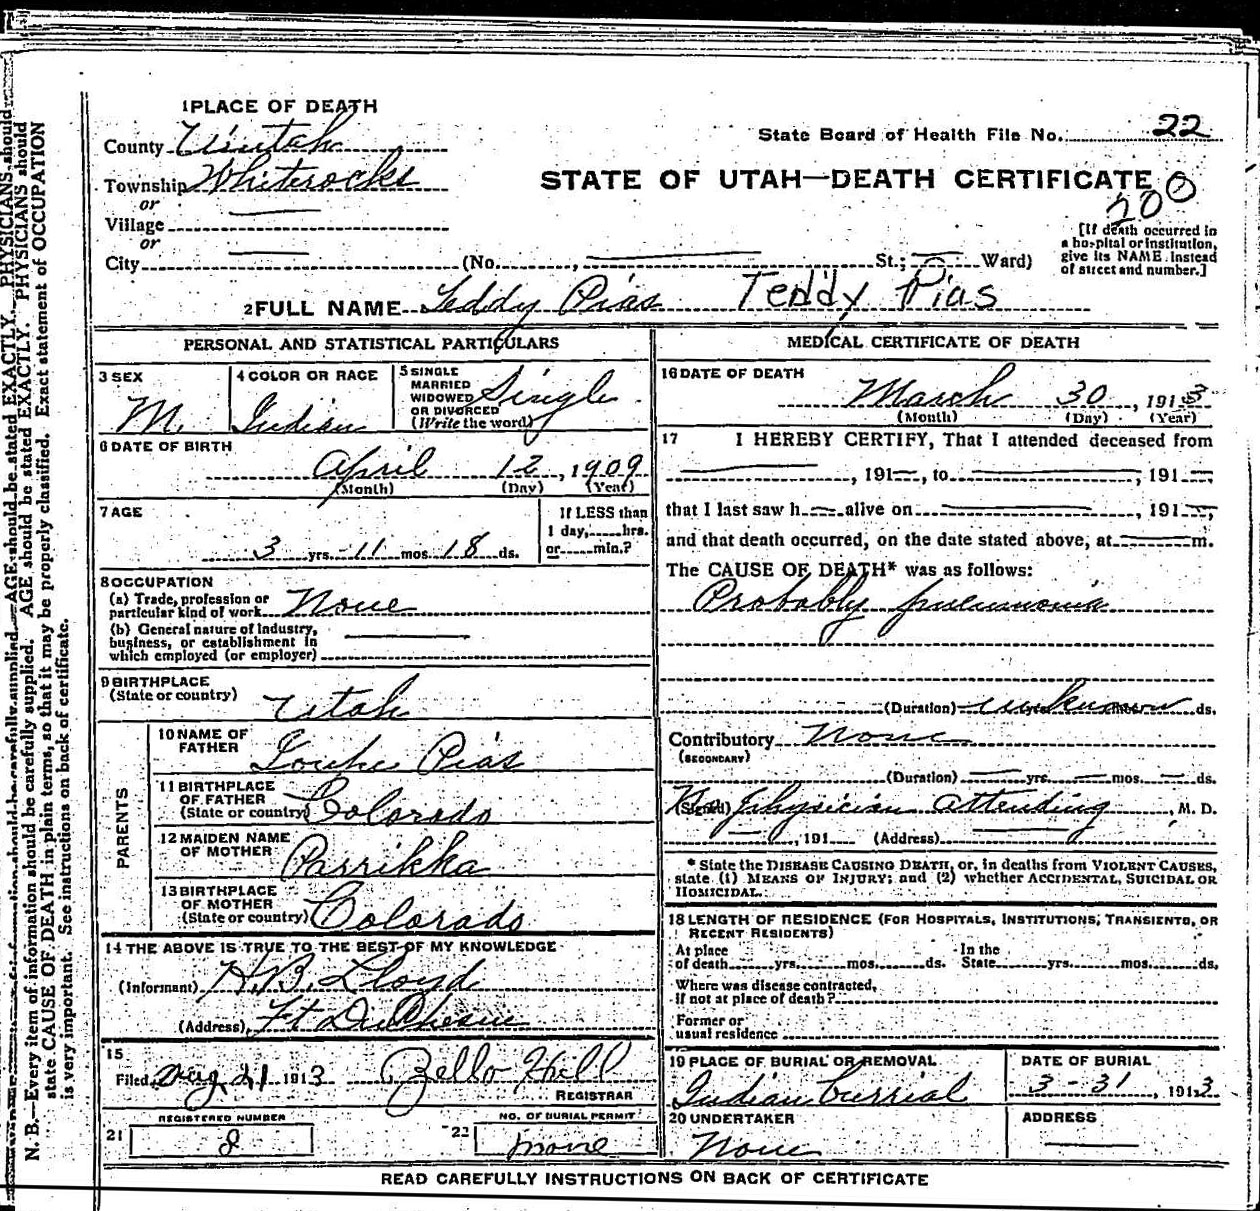 1 PLACE OF DEATH
County Uintah
Township Whiterocks
or
Village
or
City (No. , St.; Ward)
State Board of Health File No. 22
STATE OF UTAH—DEATH CERTIFICATE
200
[If death occurred in
a hospital or institution,
give its NAME instead
of street and number.]
2 FULL NAME Teddy Pias Teddy Pias
PERSONAL AND STATISTICAL PARTICULARS
3 SEX
M.
4 COLOR OR RACE
Indian
5 SINGLE
MARRIED
WIDOWED
OR DIVORCED
(Write the word)
Single
6 DATE OF BIRTH
April 12, 1909
(Month) (Day) (Year)
7 AGE
3 yrs. 11 mos. 18 ds.
If LESS than
1 day, hrs.
or min.?
8 OCCUPATION
(a) Trade, profession or
particular kind of work None
(b) General nature of industry,
business, or establishment in
which employed (or employer)
9 BIRTHPLACE
(State or country) Utah
PARENTS
10 NAME OF
FATHER Pias
11 BIRTHPLACE
OF FATHER
(State or country) Colorado
12 MAIDEN NAME
OF MOTHER Parrikka
13 BIRTHPLACE
OF MOTHER
(State or country) Colorado
14 THE ABOVE IS TRUE TO THE BEST OF MY KNOWLEDGE
(Informant) H.B. Lloyd
(Address) Ft Duchesne
15
Filed Aug 21 1913 Zella Hill
REGISTRAR
REGISTERED NUMBER
21 8
NO. OF BURIAL PERMIT
22 none
MEDICAL CERTIFICATE OF DEATH
16 DATE OF DEATH
March 30, 1913
(Month) (Day) (Year)
17 I HEREBY CERTIFY, That I attended deceased from
, 191 , to , 191 ,
that I last saw h alive on , 191 ,
and that death occurred, on the date stated above, at m.
The CAUSE OF DEATH* was as follows:
Probably pneumonia
(Duration) unknown ds.
Contributory None
(SECONDARY)
(Duration) yrs. mos. ds.
(Signed) No physician attending, M. D.
, 191 (Address)
* State the DISEASE CAUSING DEATH, or, in deaths from VIOLENT CAUSES,
state (1) MEANS OF INJURY; and (2) whether ACCIDENTAL, SUICIDAL OR
HOMICIDAL.
18 LENGTH OF RESIDENCE (FOR HOSPITALS, INSTITUTIONS, TRANSIENTS, OR
RECENT RESIDENTS)
At place
of death yrs. mos. ds.
In the
State yrs. mos. ds.
Where was disease contracted,
if not at place of death?
Former or
usual residence
19 PLACE OF BURIAL OR REMOVAL
Indian burrial
DATE OF BURIAL
3-31, 1913
20 UNDERTAKER
None
ADDRESS
READ CAREFULLY INSTRUCTIONS ON BACK OF CERTIFICATE
N. B.—Every item of information should be carefully supplied. AGE should be stated EXACTLY. PHYSICIANS should
state CAUSE OF DEATH in plain terms, so that it may be properly classified. Exact statement of OCCUPATION
is very important. See instructions on back of certificate.